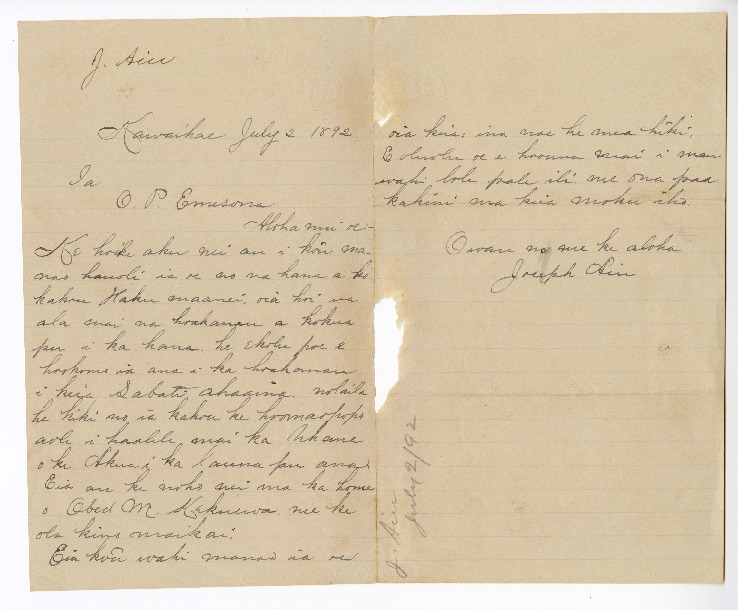 J. Aiu
Kawaihae July 2 1892
Ia
O. P. Emesona
Aloha nui oe:-
Ke hoike aku nei au i ko'u ma-
nao hauoli ia oe no na hana a ko
kakou Haku maanei, oia hoi ua
ala mai na hoahanau a kokua
pu i ka hana. he ekolu poe e
hookomo ia ana i ka hoahanau
i keia Sabati ahaaina. nolaila
he hiki no ia kakou ke hoomaopopo
aole i haalele mai ka Uhane
o ke Akua i ka launa pu ana.
Eia au ke noho nei ma ka home
o Obed M. me ke
ola kino maikai.
Eia ko'u wahi manao ia oe
oia keia: ina nae he mea hiki.
E oluolu oe e hoouna mai i mau
wahi lole pale ili me ona paa
kakini ma keia moku iho.
Owau no me ke aloha
Joseph Aiu
J. Aiu
July 2/92